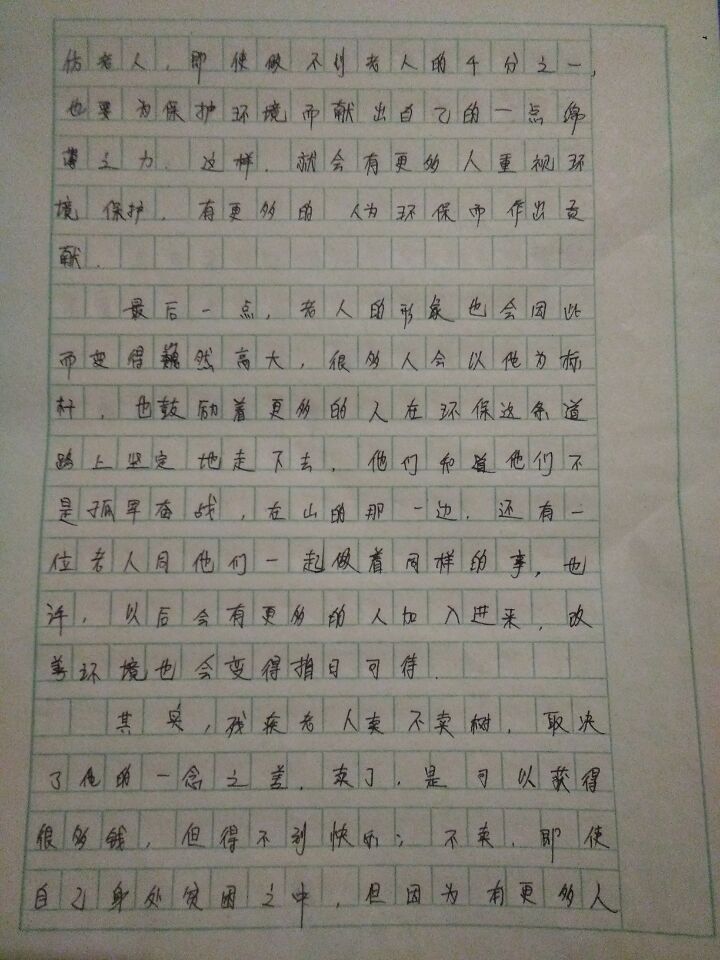 仿老人，即使做不到老人的十分之一，
也要为保护环境而献出自己的一点绵
薄之力．这样．就会有更多人重视环
境保护．有更多的人为环保而作出贡
献．
最后一点，老人的形象也会因此
而变得巍然高大，很多人会以他为标
杆，也鼓励着更多的人在环保这条道
路上坚定地走下去．他们知道他们不
是孤军奋战，在山的那一边．还有一
位老人同他们一起做着同样的事，也
许，以后会有更多的人加入进来，改
善环境也会变得指日可待．
其实，残疾老人卖不卖树，取决
了他的一念之差．卖了，是可以获得
很多钱，但得不到快乐；不卖，即使
自己身处贫困之中，但因为有更多人